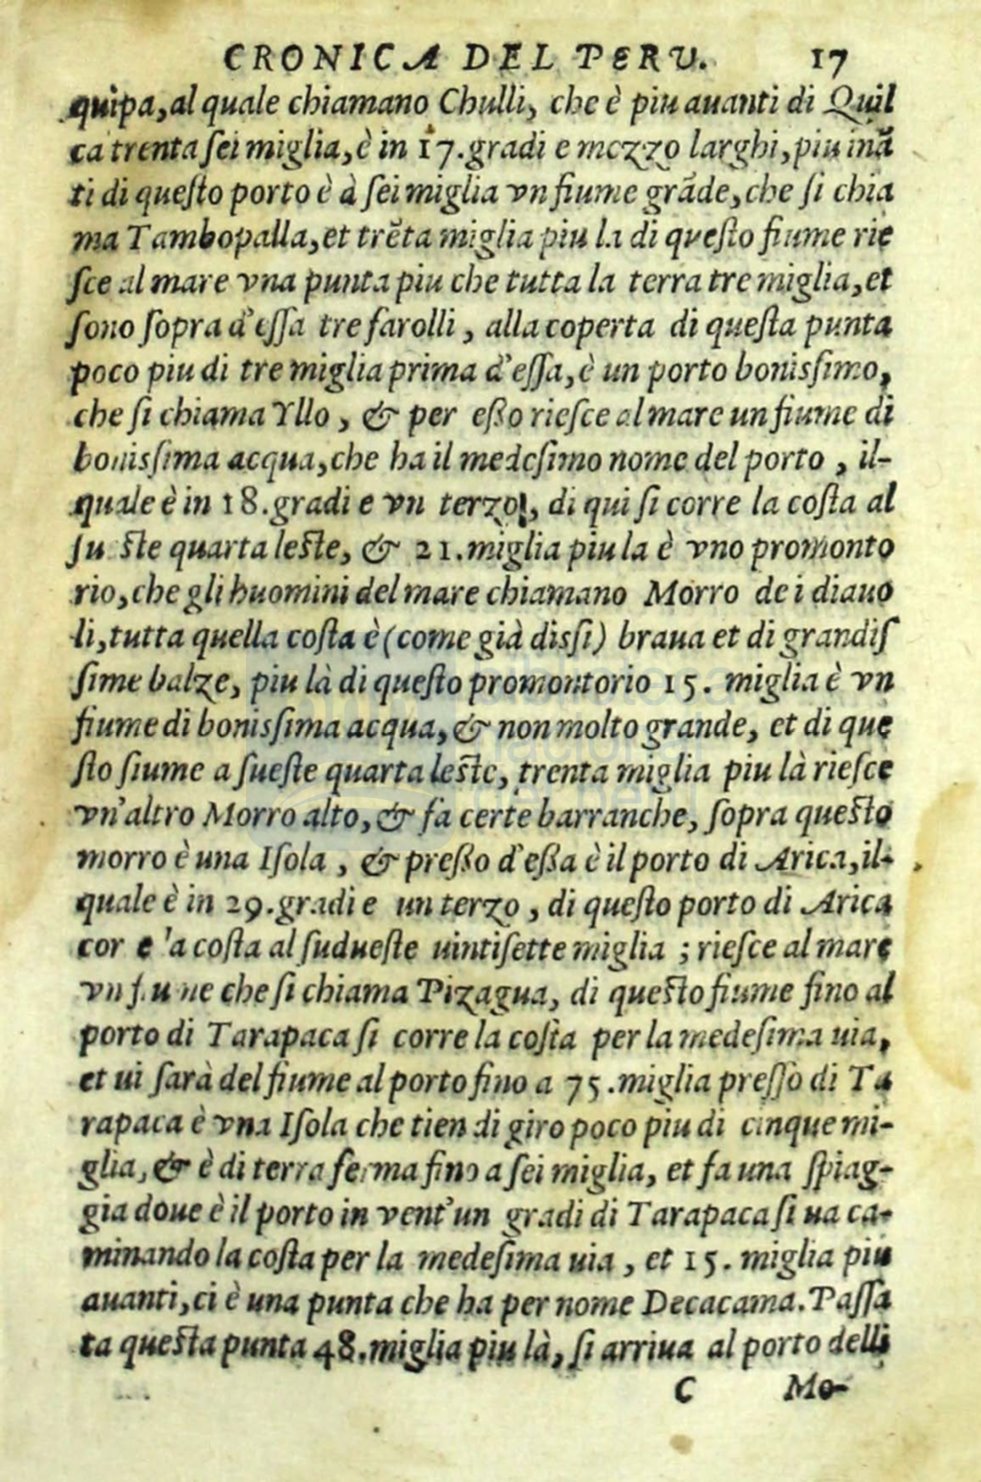 CRONICA DEL PERU. 17
quipa, al quale chiamano Chulli, che è piu auanti di Quil
ca trenta sei miglia, è in 17. gradi e mezzo larghi, piu inã
ti di questo porto è à sei miglia vn fiume grãde, che si chia
ma Tambopalla, et trẽta miglia piu la di questo fiume rie
sce al mare vna punta piu che tutta la terra tre miglia, et
sono sopra d'essa tre farolli, alla coperta di questa punta
poco piu di tre miglia prima d'essa, è un porto bonissimo,
che si chiama Yllo, & per esso riesce al mare un fiume di
bonissima acqua, che ha il medesimo nome del porto, il-
quale è in 18. gradi e vn terzo, di qui si corre la costa al
su ste quarta leste, & 21. miglia piu la è vno promonto
rio, che gli huomini del mare chiamano Morro de i diauo
li, tutta quella costa è (come già dissi) braua et di grandis
sime balze, piu là di questo promontorio 15. miglia è vn
fiume di bonissima acqua, & non molto grande, et di que
sto fiume a sueste quarta leste, trenta miglia piu là riesce
vn'altro Morro alto, & fa certe barranche, sopra questo
morro è una Isola, & presso d'essa è il porto di Arica, il-
quale è in 29. gradi e un terzo, di questo porto di Arica
cor e 'a costa al sudueste uintisette miglia; riesce al mare
vn fiume che si chiama Pizagua, di questo fiume fino al
porto di Tarapaca si corre la costa per la medesima uia,
et ui sarà del fiume al porto fino a 75. miglia presso di Ta
rapaca è vna Isola che tien di giro poco piu di cinque mi-
glia, & è di terra ferma fino a sei miglia, et fa una spiag-
gia doue è il porto in vent'un gradi di Tarapaca si ua ca-
minando la costa per la medesima uia, et 15. miglia piu
auanti, ci è una punta che ha per nome Decacama. Passa
ta questa punta 48. miglia piu là, si arriua al porto delli
C Mo-